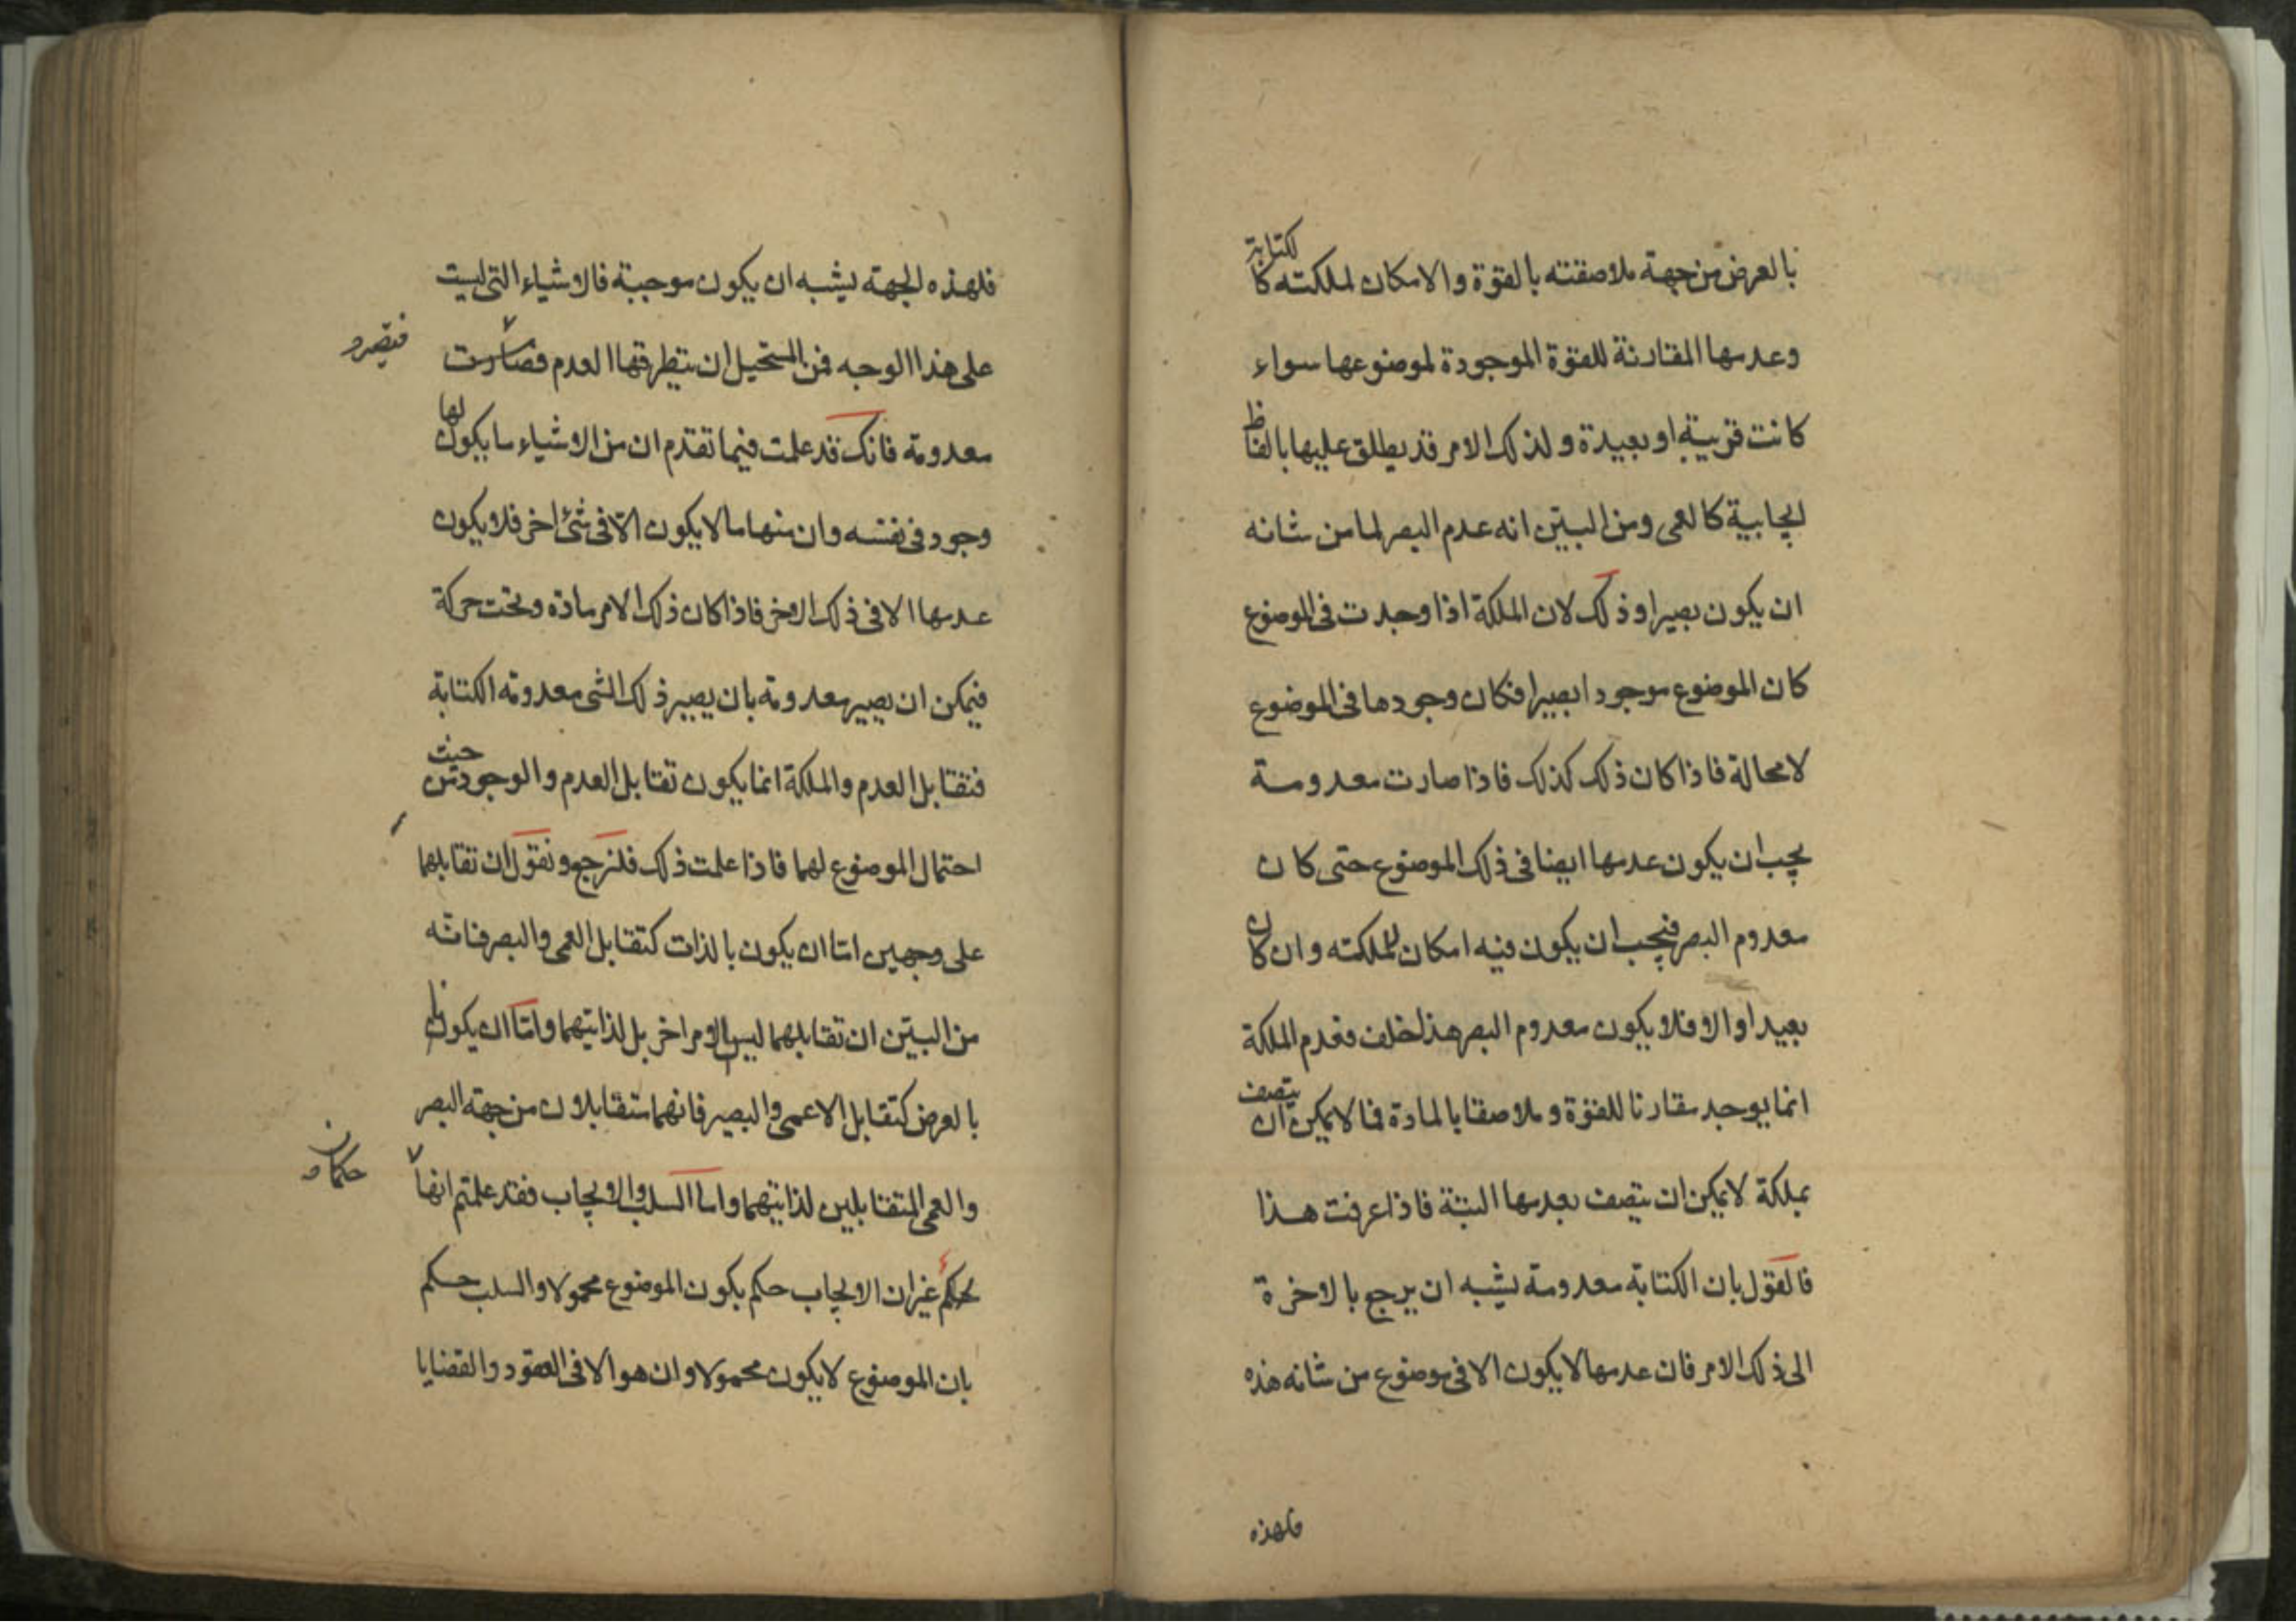 بالعرض من جهة ملاصقته بالقوة والامكان لملكته كالكتابة
وعدمها المقارنة للقوة الموجودة لموضوعها سواء
كانت قريبة او بعيدة ولذلك الامر قد يطلق عليها بالفاظ
ايجابية كالعمى ومن البين انه عدم البصر لما من شانه
ان يكون بصيرا وذلك لان الملكة اذا وجدت فى الموضوع
كان الموضوع موجودا بصيرا فكان وجودها فى الموضوع
لا محالة فاذا كان ذلك كذلك فاذا صارت معدومة
يجب ان يكون عدمها ايضا فى ذلك الموضوع حتى كان
معدوم البصر فيجب ان يكون فيه امكان لملكته وان كان
بعيدا والا فلا يكون معدوم البصر هذا خلف فعدم الملكة
انما يوجد مقارنا للقوة وملاصقا بالمادة فما لا يمكن ان يتصف
بملكة لا يمكن ان يتصف بعدمها البتة فاذا عرفت هذا
فالقول بان الكتابة معدومة يشبه ان يرجع بالاخرة
الى ذلك الامر فان عدمها لا يكون الا فى موضوع من شانه هذه
فلهذه
فلهذه الجهة يشبه ان يكون موجبة فالاشياء التى ليست
على هذا الوجه فمن المستحيل ان يتطرقها العدم فصارت
فيصير و
معدومة فانك قد علمت فيما تقدم ان من الاشياء ما يكون لها
وجود فى نفسه وان منها ما لا يكون الا فى شئ اخر فلا يكون
عدمها الا فى ذلك الاخر فاذا كان ذلك الامر مادة وتحت حركة
فيمكن ان يصير معدومة بان يصير ذلك الشى معدومة الكتابة
فتقابل العدم والملكة انما يكون تقابل العدم والوجود من حيث
احتمال الموضوع لهما فاذا علمت ذلك فلنرجع ونقول ان تقابلهما
على وجهين اما ان يكون بالذات كتقابل العمى والبصر فانه
من البين ان تقابلهما ليس لامر اخر بل لذاتيهما واما ان يكون
بالعرض كتقابل الاعمى والبصير فانهما متقابلان من جهة البصر
والعمى المتقابلين لذاتيهما واما السلب والايجاب فقد علمتم انهما
حكمان و
بحكم غير ان الايجاب حكم بكون الموضوع محمولا والسلب حكم
بان الموضوع لا يكون محمولا وان هو الا فى العقود والقضايا